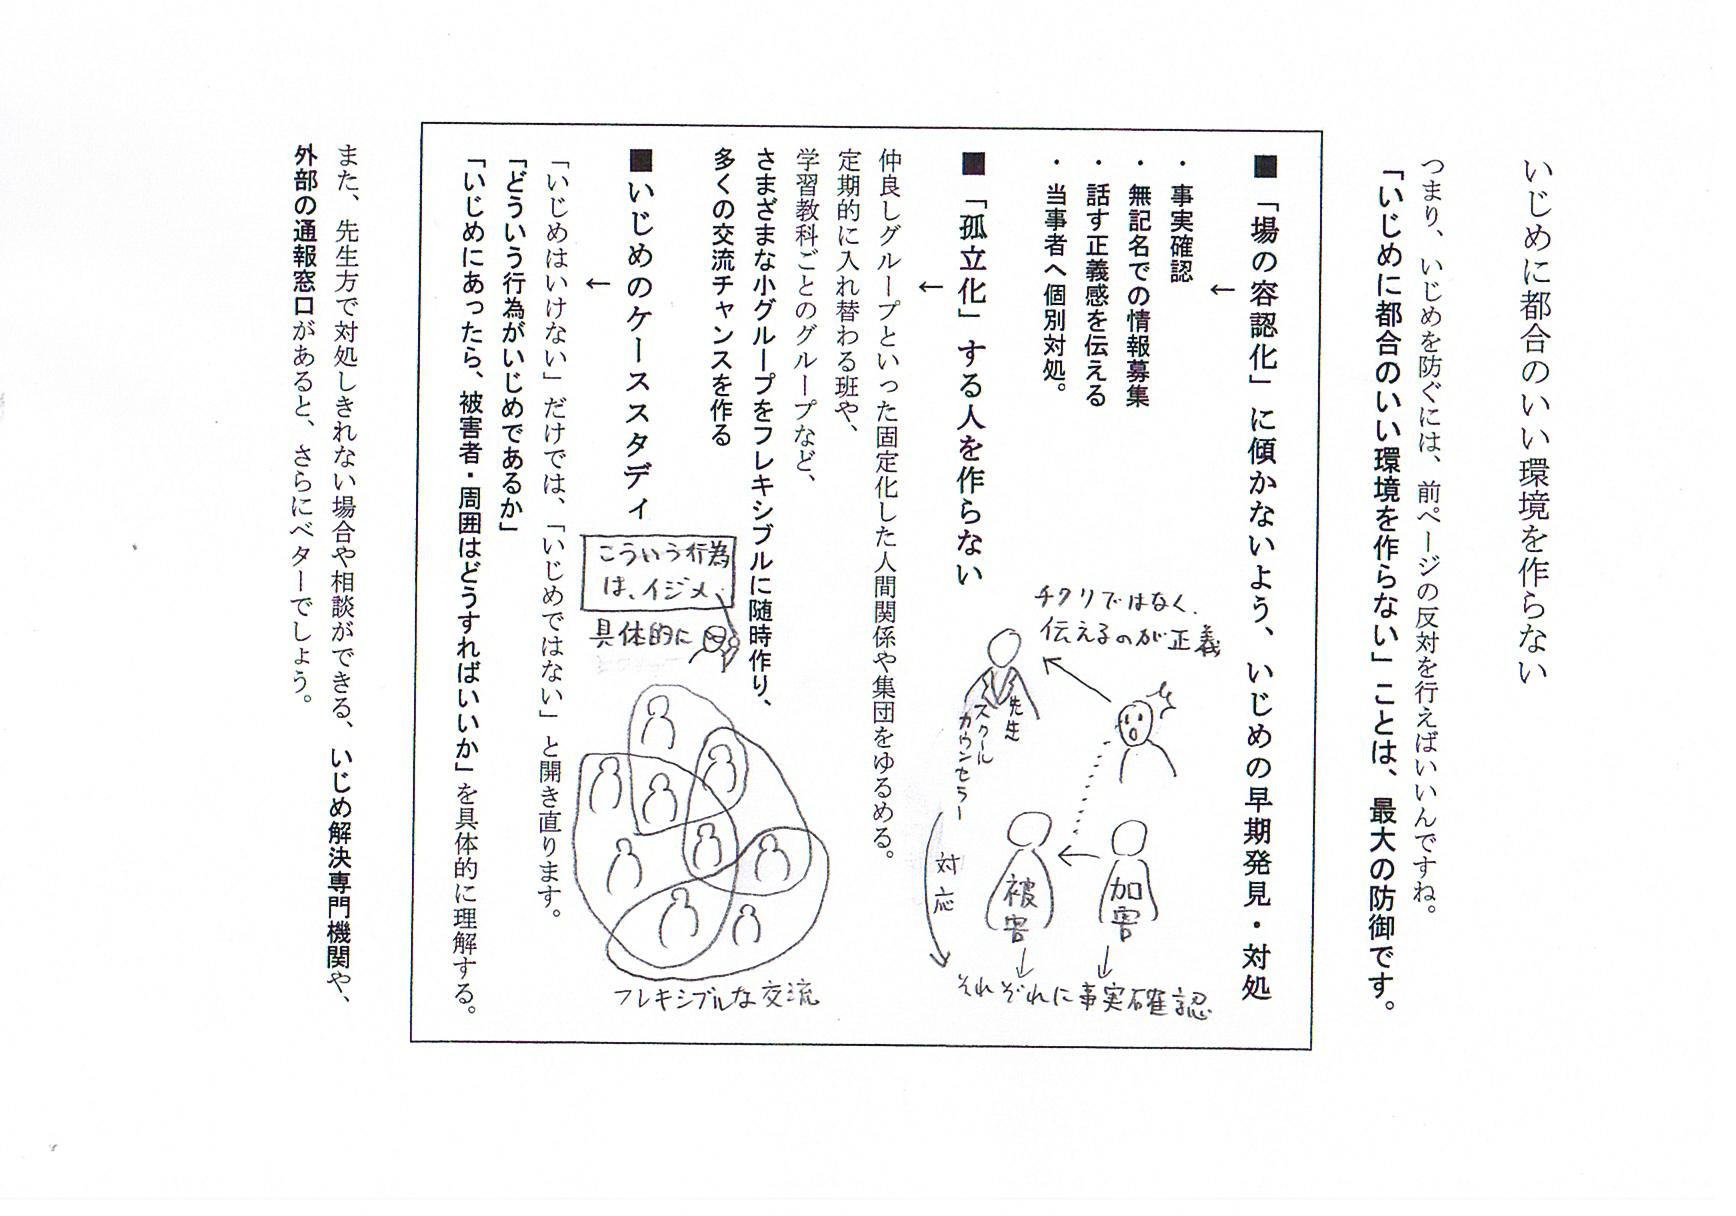 いじめに都合のいい環境を作らない
つまり、いじめを防ぐには、前ページの反対を行えばいいんですね。
「いじめに都合のいい環境を作らない」ことは、最大の防御です。
■「場の容認化」に傾かないよう、いじめの早期発見・対処
↓
・事実確認
・無記名での情報募集
・話す正義感を伝える
・当事者へ個別対処。
チクリではなく、
伝えるのが正義
先生
スクール
カウンセラー
加害
被害
対応
それぞれに事実確認
■「孤立化」する人を作らない
↓
仲良しグループといった固定化した人間関係や集団をゆるめる。
定期的に入れ替わる班や、
学習教科ごとのグループなど、
さまざまな小グループをフレキシブルに随時作り、
多くの交流チャンスを作る
フレキシブルな交流
■いじめのケーススタディ
↓
こういう行為
は、イジメ.
具体的に
「いじめはいけない」だけでは、「いじめではない」と開き直ります。
「どういう行為がいじめであるか」
「いじめにあったら、被害者・周囲はどうすればいいか」を具体的に理解する。
また、先生方で対処しきれない場合や相談ができる、いじめ解決専門機関や、
外部の通報窓口があると、さらにベターでしょう。